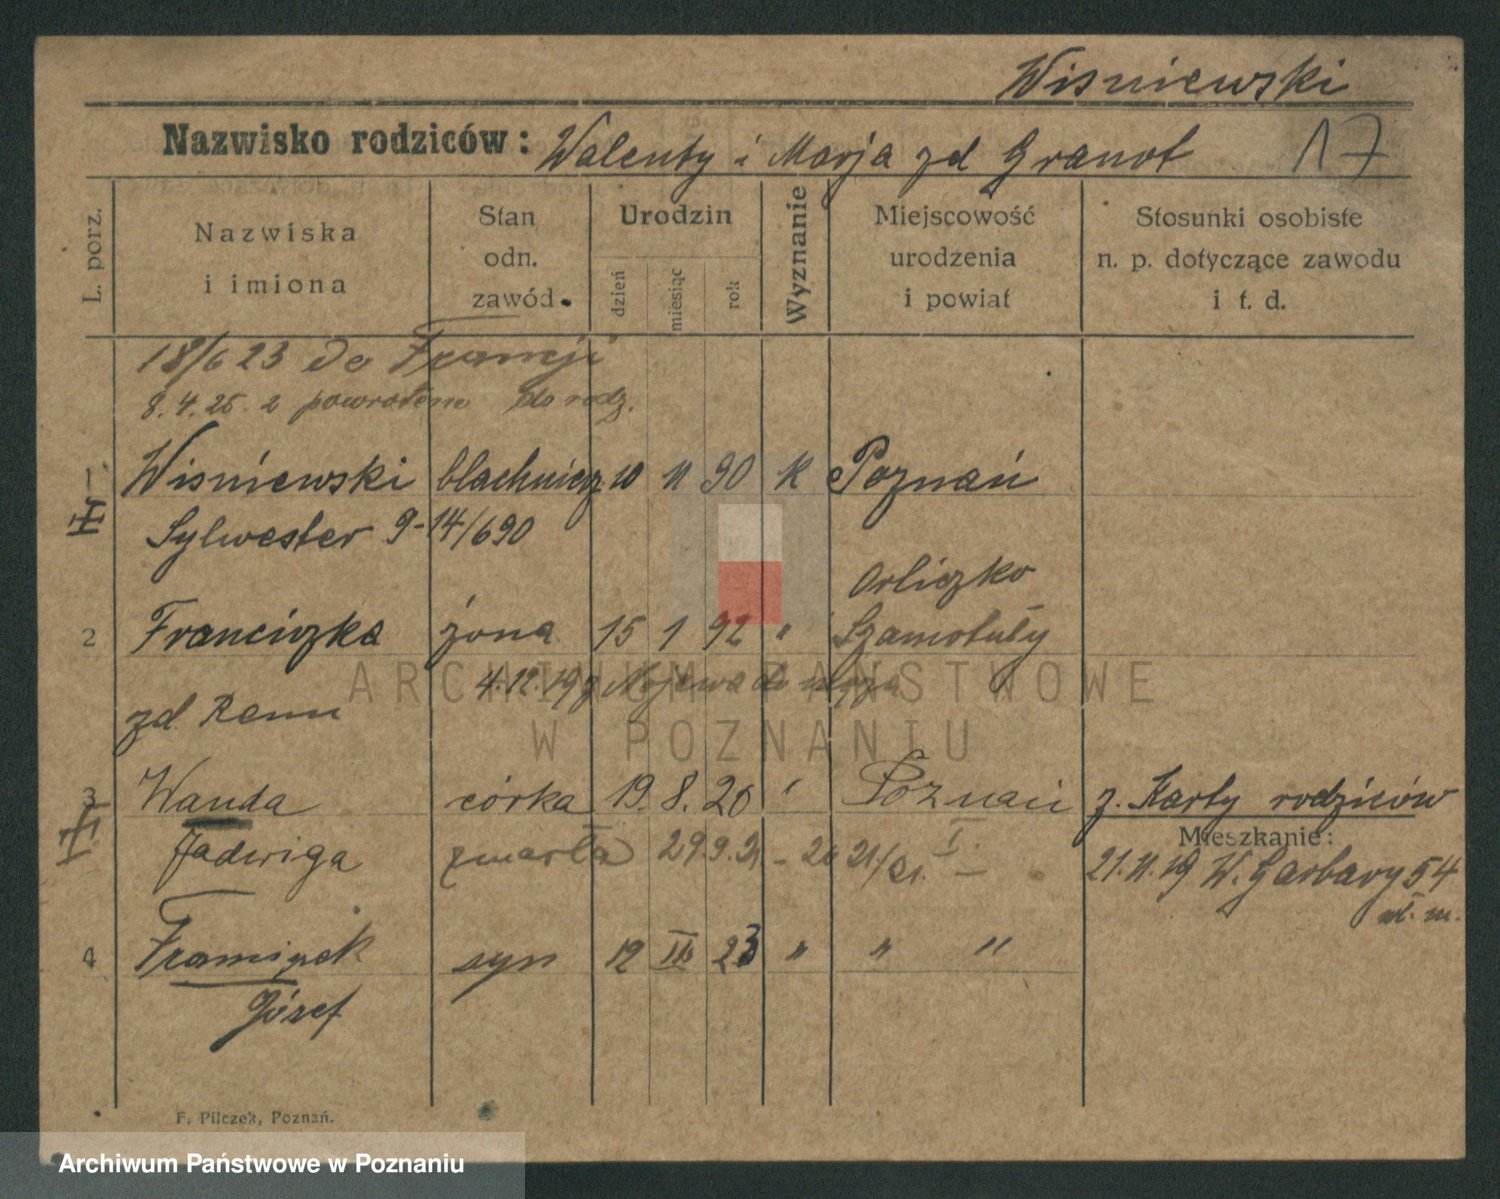 Wiśniewski
Nazwisko rodziców: Walenty i Marja zd Granot 17
L. porz.
Nazwiska i imiona
Stan odn. zawód
Urodzin
dzień
miesiąc
rok
Wyznanie
Miejscowość urodzenia i powiat
Stosunki osobiste n. p. dotyczące zawodu i t. d.
18/6 23 do Francji
8.4.25. z powrotem do rodz.
1 Wiśniewski blachnierz 10 11 90 K Poznań
III
Sylwester 9-14/690
Orliczko
2 Franciszka żona 15 1 92 " Szamotuły
4.12.19 z do męża
zd
3 Wanda córka 19. 8. 20 " Poznań z. Karty rodziców
Mieszkanie:
Jadwiga zmarła 29.9.21 I.
21.11.19 W. Garbary 54
4 Franciszek syn 12 III 23 " " "
Józef
F. Pilczek, Poznań.
ARCHIWUM PAŃSTWOWE
W POZNANIU
Archiwum Państwowe w Poznaniu